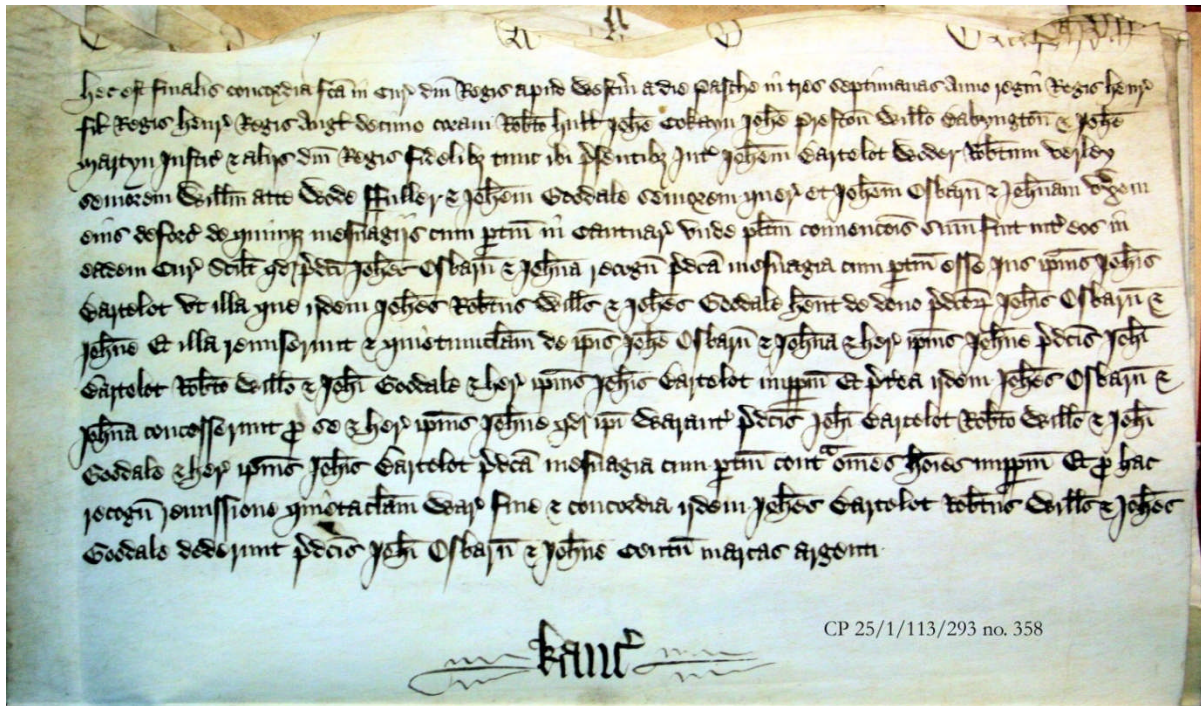 Hec est finalis concordia fca in Cur dni Regis apud Westm a die Pasche in tres septimanas Anno regni Regis Henr
fil Regis Henr Regis Angl decimo coram Robto Hull Johe Cokayn Johe Preston Willo Babyngton & Johe
Martyn Justic & aliis dni Regis fidelibz tunc ibi psentibz Int Johem Bartelot Woder Robtum Verley
seniorem Willm atte Wode Ffuller & Johem Goodale seniorem quer Et Johem Osbarn & Johnam vxem
eius deforc de quinqz mesuagijs cum ptin in Cantuar Vnde plitm convencois sum fuit int eos in
eadem Cur Scilt qd pdci Johes Osbarn & Johna recogn pdca mesuagia cum ptin esse Jus ipius Johis
Bartelot vt illa que ijdem Johes Robtus Wills & Johes Goodale hent de dono pdcor Johis Osbarn &
Johne Et illa remiserunt & quietumclam de ipis Johe Osbarn & Johna & her ipius Johne pdcis Johi
Bartelot Robto Willo & Johi Goodale & her ipius Johis Bartelot imppm Et pterea ijdem Johes Osbarn &
Johna concesserunt p se & her ipius Johne qd ipi Warant pdcis Johi Bartelot Robto Willo & Johi
Goodale & her ipius Johis Bartelot pdca mesuagia cum ptin conta omes hoies imppm Et p hac
recogn remissione quietaclam War fine & concordia ijdem Johes Bartelot Robtus Wills & Johes
Goodale dederunt pdcis Johi Osbarn & Johne Centum marcas argenti
CP 25/1/113/293 no. 358
Kanc